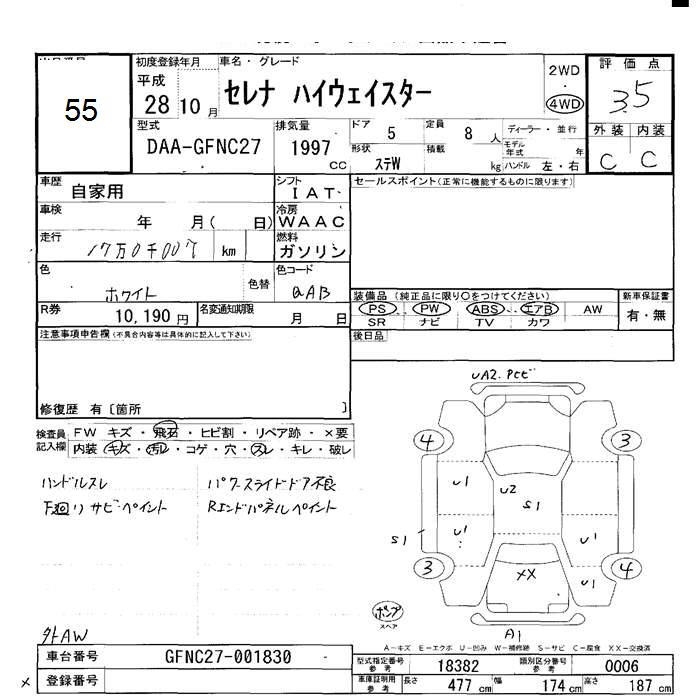 初度登録年月 車名・グレード 評価点
平成 28 10 月 セレナ ハイウェイスター 2WD 4WD 3.5
55
型式 排気量 ドア 定員 ディーラー・並行 外装 内装
DAA-GFNC27 1997 CC 5 8 人 モデル年式 年 C C
形状 ステW 積載 kg ハンドル 左・右
車歴 自家用 シフト IAT セールスポイント(正常に機能するものに限ります)
車検 年 月( 日) 冷房 WAAC
走行 17万0千00 km 燃料 ガソリン
色 ホワイト 色替 色コード QAB
装備品(純正品に限り○をつけてください) 新車保証書
R券 10,190円 名変通知期限 月 日 PS PW ABS エアB AW 有・無
SR ナビ TV カワ
注意事項申告欄(不具合内容等は具体的に記入して下さい) 後日品
修復歴 有〔箇所 〕
検査員記入欄 FW キズ・飛石・ヒビ割・リペア跡・×要
内装 キズ・汚レ・コゲ・穴・スレ・キレ・破レ
ハンドルスレ パワースライドドア不良
下回りサビ・ペイント Rエンドパネルペイント
UA2.Pとビ
4 3
U1 U2 S1
S1 U1 U1
3 XX 4
U1
ポンプ
スペア
A1
外AW
A-キズ E-エクボ U-凹み W-補修跡 S-サビ C-腐食 XX-交換済
車台番号 GFNC27-001830 型式指定番号 参考 18382 類別区分番号 参考 0006
× 登録番号 車庫証明用 参考 長さ 477 cm 幅 174 cm 高さ 187 cm